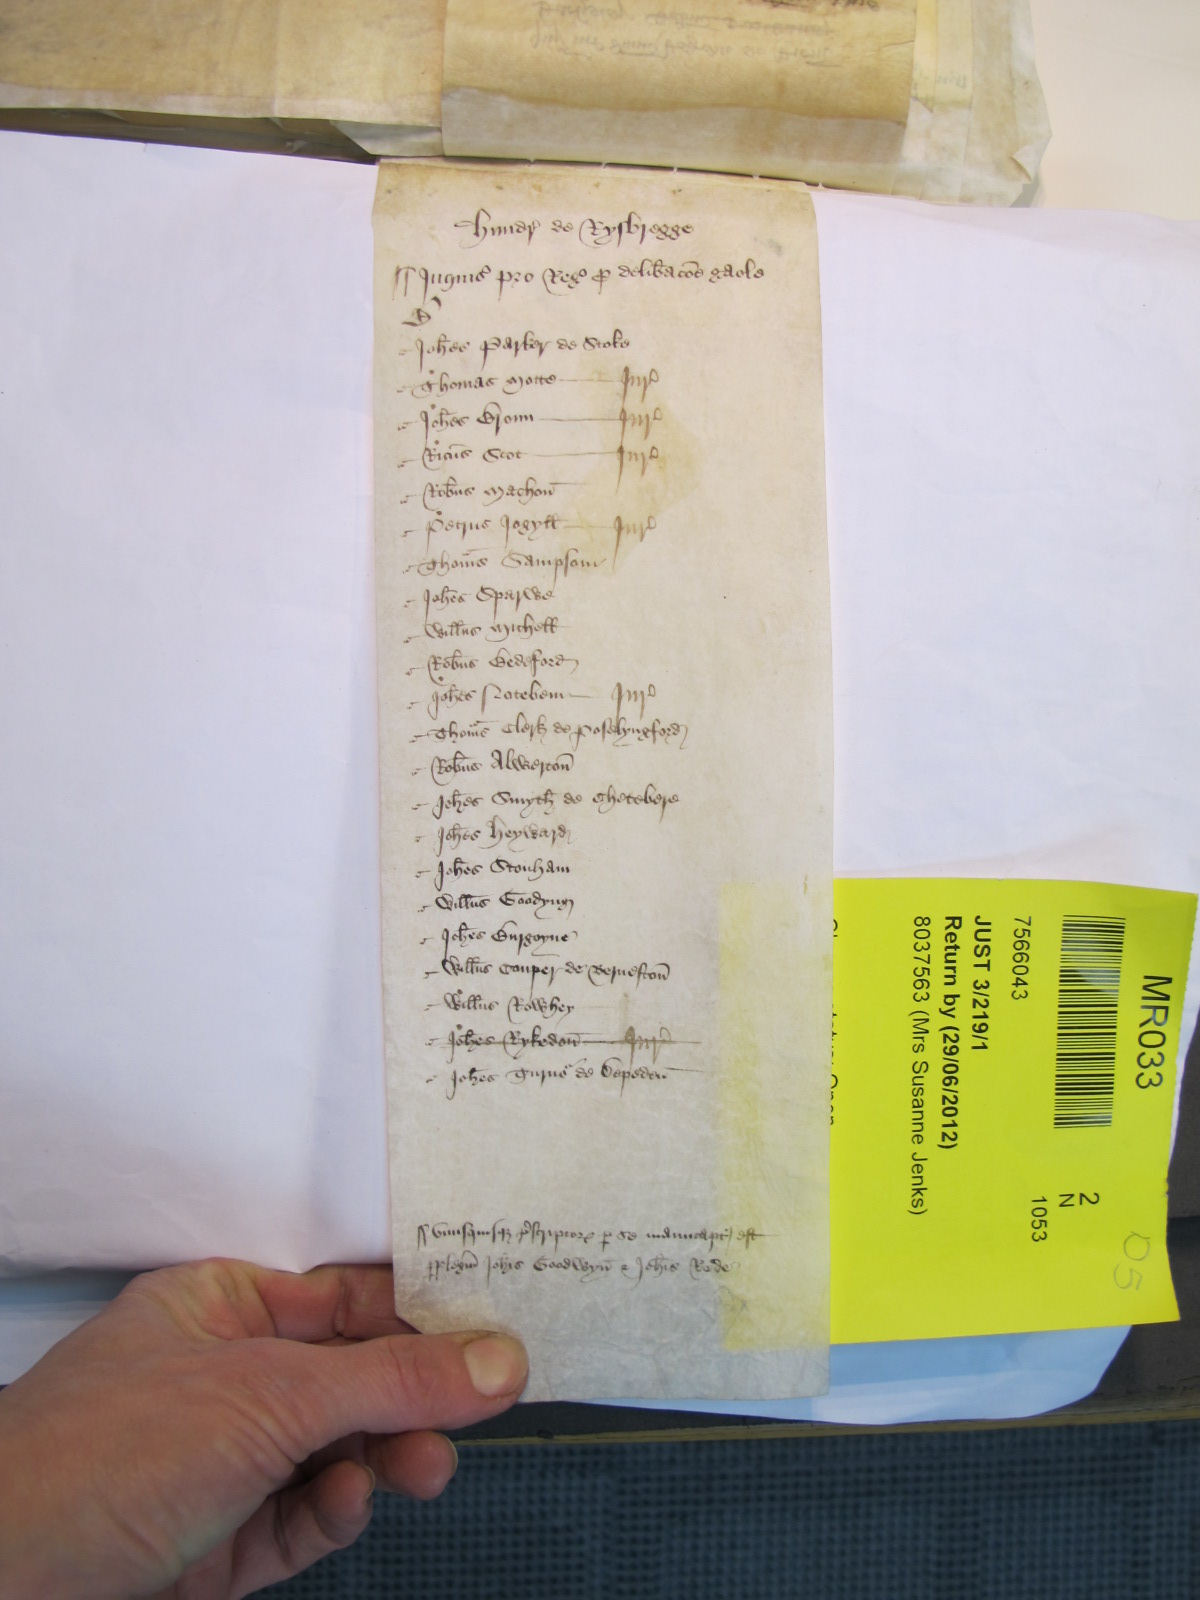 hundr' de Rysbregge
Iur' pro Rege p delib'acoe gaole
Joh'es Parker de Stoke
Thomas Motte Jur'
Joh'es Broun Jur'
Ric'us Scot Jur'
Rob'tus Machon
Petrus Jogyll Jur'
Thom's Sampson
Joh'es Sparwe
Will's Michell
Rob'tus Bedeford
Joh'es Notebem Jur'
Thom's Clerk de Poselyngford
Rob'tus Alwarton
Joh'es Smyth de Chetebere
Joh'es Heyward
Joh'es Stonham
Will's Goodyng
Joh'es Burgoyne
Will's Couper de Berneston
Will's Rowhey
Joh'es Rykedon Jur'
Joh'es de Depeden
p se manucapt' est
Joh'is Goodwyn & Joh'is Rede
MR033
2
N
1053
7566043
JUST 3/219/1
Return by (29/06/2012)
8037563 (Mrs Susanne Jenks)
05